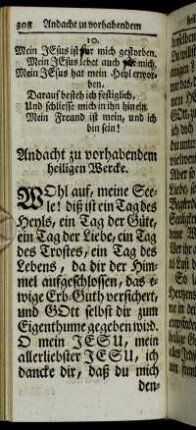 308 Andacht zu vorhabendem
10.
Mein JEsus ist für mich gestorben.
Mein JEsus lebet auch für mich.
Mein JEsus hat mein Heyl erwor-
ben,
Darauf besteh ich festiglich,
Und schliesse mich in ihn hinein.
Mein Freund ist mein, und ich
bin sein!
Andacht zu vorhabendem
heiligen Wercke.
WOhl auf, meine See-
le! diß ist ein Tag des
Heyls, ein Tag der Güte,
ein Tag der Liebe, ein Tag
des Trostes, ein Tag des
Lebens, da dir der Him-
mel aufgeschlossen, das e-
wige Erb-Guth versichert,
und GOtt selbst dir zum
Eigenthume gegeben wird.
O mein JESU, mein
allerliebster JESU, ich
dancke dir, daß du mich
den-